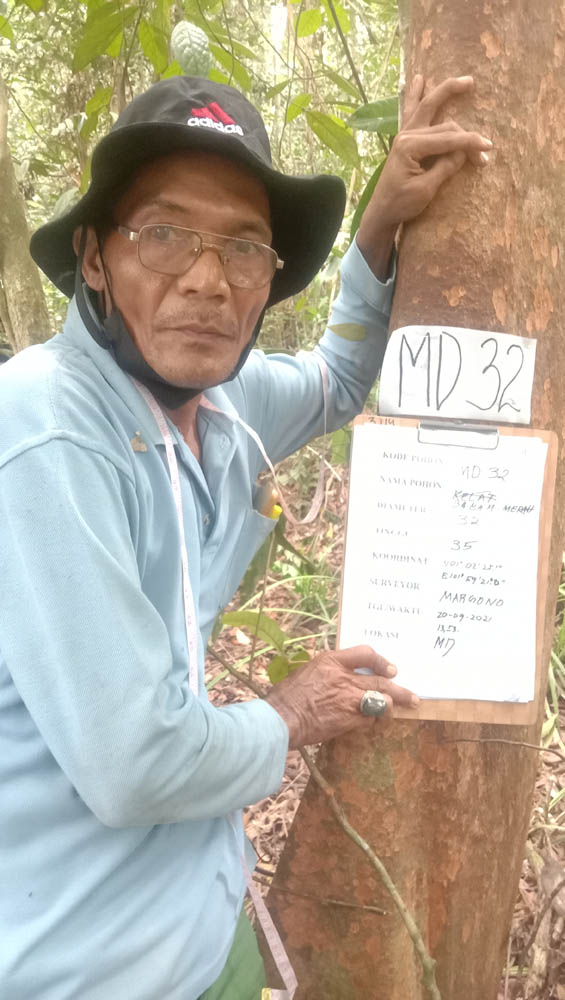 adidas
MD 32
KODE POHON MD 32
NAMA POHON
MERAH
DIAMETER 32
TINGGI 35
KOORDINAT
SURVEYOR MARGONO
TGL/WAKTU 20-09-2021
13.53.
LOKASI MD